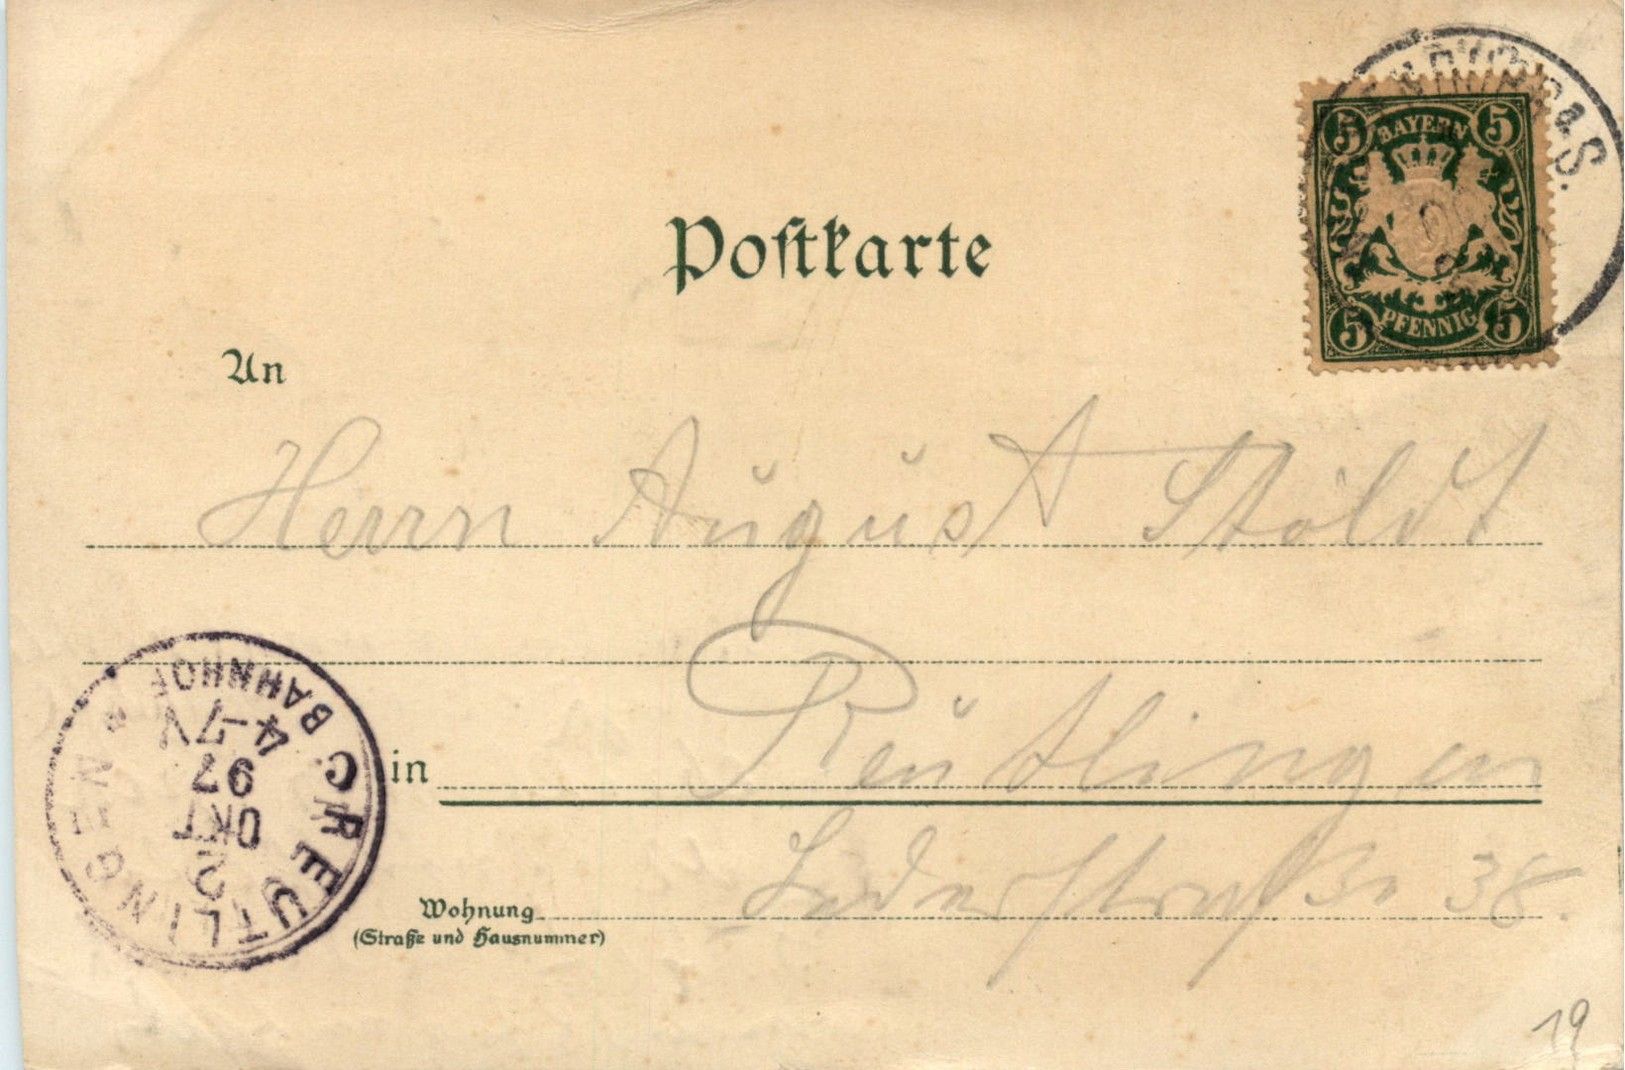 5 BAYERN 5
5 PFENNIG 5
a.S.
Postkarte
An
Herrn August Stoldt
in Reutlingen
Lederstraße 38.
Wohnung
(Straße und Hausnummer)
REUTLINGEN
C. BAHNHOF
2
OKT
97
4-7V
19